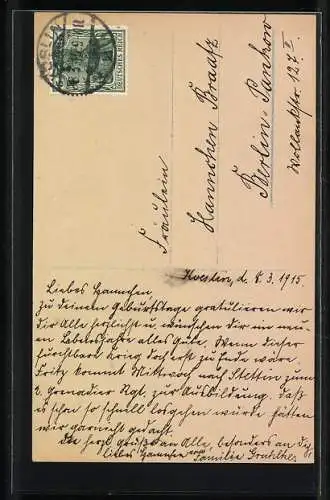 DEUTSCHES REICH
Fräulein
Hannchen Braatz
Berlin-Pankow
Wollankstr. 127 I
d. 8.3.1915
Liebes Hannchen,
Zu deinem Geburtstage gratulieren wir
Dir Alle herzlichst u. wünschen dir im neu-
en Lebensjahre alles Gute. Wenn dieser
furchtbare Krieg doch erst zu Ende wäre.
Fritz kommt Mittwoch nach Stettin zum
2. Grenadier Rgt. zur Ausbildung. Daß
es schon so schnell losgehen würde hätten
wir garnicht gedacht.
herzl. grüßt an Alle, besonders an dich
liebes Hannchen Familie